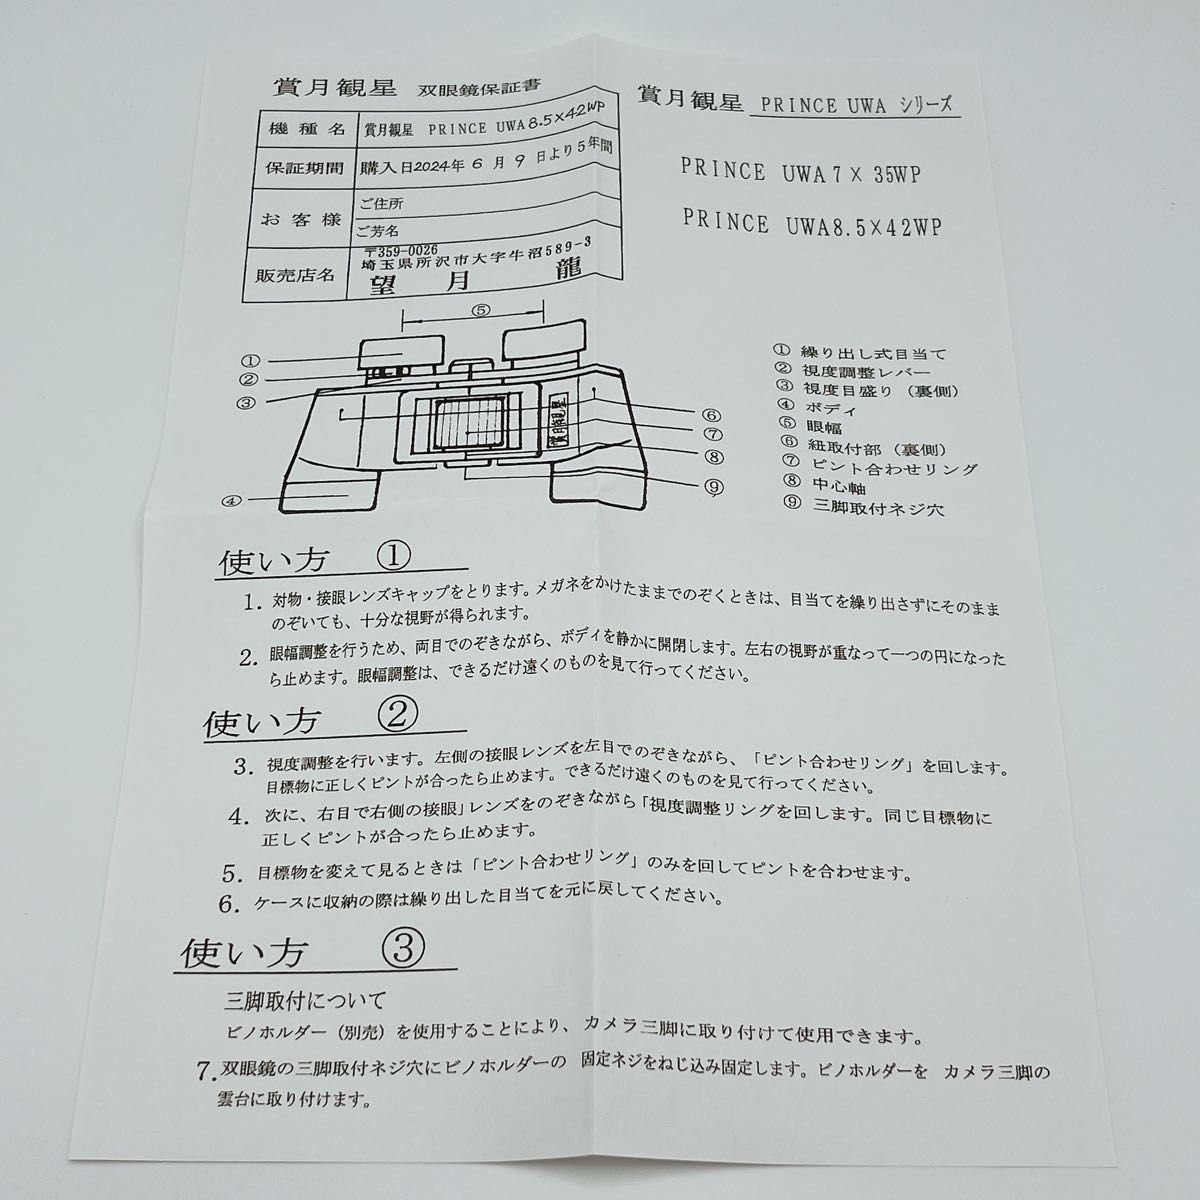 賞月観星 双眼鏡保証書
機種名 賞月観星 PRINCE UWA8.5×42WP
保証期間 購入日2024年6月9日より5年間
お客様 ご住所
ご芳名
販売店名 〒359-0026
埼玉県所沢市大字牛沼589-3
望月 龍
賞月観星 PRINCE UWA シリーズ
PRINCE UWA7×35WP
PRINCE UWA8.5×42WP
⑤
①
②
③
④
⑥
⑦
⑧
⑨
賞月観星
① 繰り出し式目当て
② 視度調整レバー
③ 視度目盛り（裏側）
④ ボディ
⑤ 眼幅
⑥ 紐取付部（裏側）
⑦ ピント合わせリング
⑧ 中心軸
⑨ 三脚取付ネジ穴
使い方 ①
1. 対物・接眼レンズキャップをとります。メガネをかけたままでのぞくときは、目当てを繰り出さずにそのまま
のぞいても、十分な視野が得られます。
2. 眼幅調整を行うため、両目でのぞきながら、ボディを静かに開閉します。左右の視野が重なって一つの円になった
ら止めます。眼幅調整は、できるだけ遠くのものを見て行ってください。
使い方 ②
3. 視度調整を行います。左側の接眼レンズを左目でのぞきながら、「ピント合わせリング」を回します。
目標物に正しくピントが合ったら止めます。できるだけ遠くのものを見て行ってください。
4. 次に、右目で右側の接眼」レンズをのぞきながら「視度調整リングを回します。同じ目標物に
正しくピントが合ったら止めます。
5. 目標物を変えて見るときは「ピント合わせリング」のみを回してピントを合わせます。
6. ケースに収納の際は繰り出した目当てを元に戻してください。
使い方 ③
三脚取付について
ビノホルダー（別売）を使用することにより、カメラ三脚に取り付けて使用できます。
7. 双眼鏡の三脚取付ネジ穴にビノホルダーの 固定ネジをねじ込み固定します。ビノホルダーを カメラ三脚の
雲台に取り付けます。